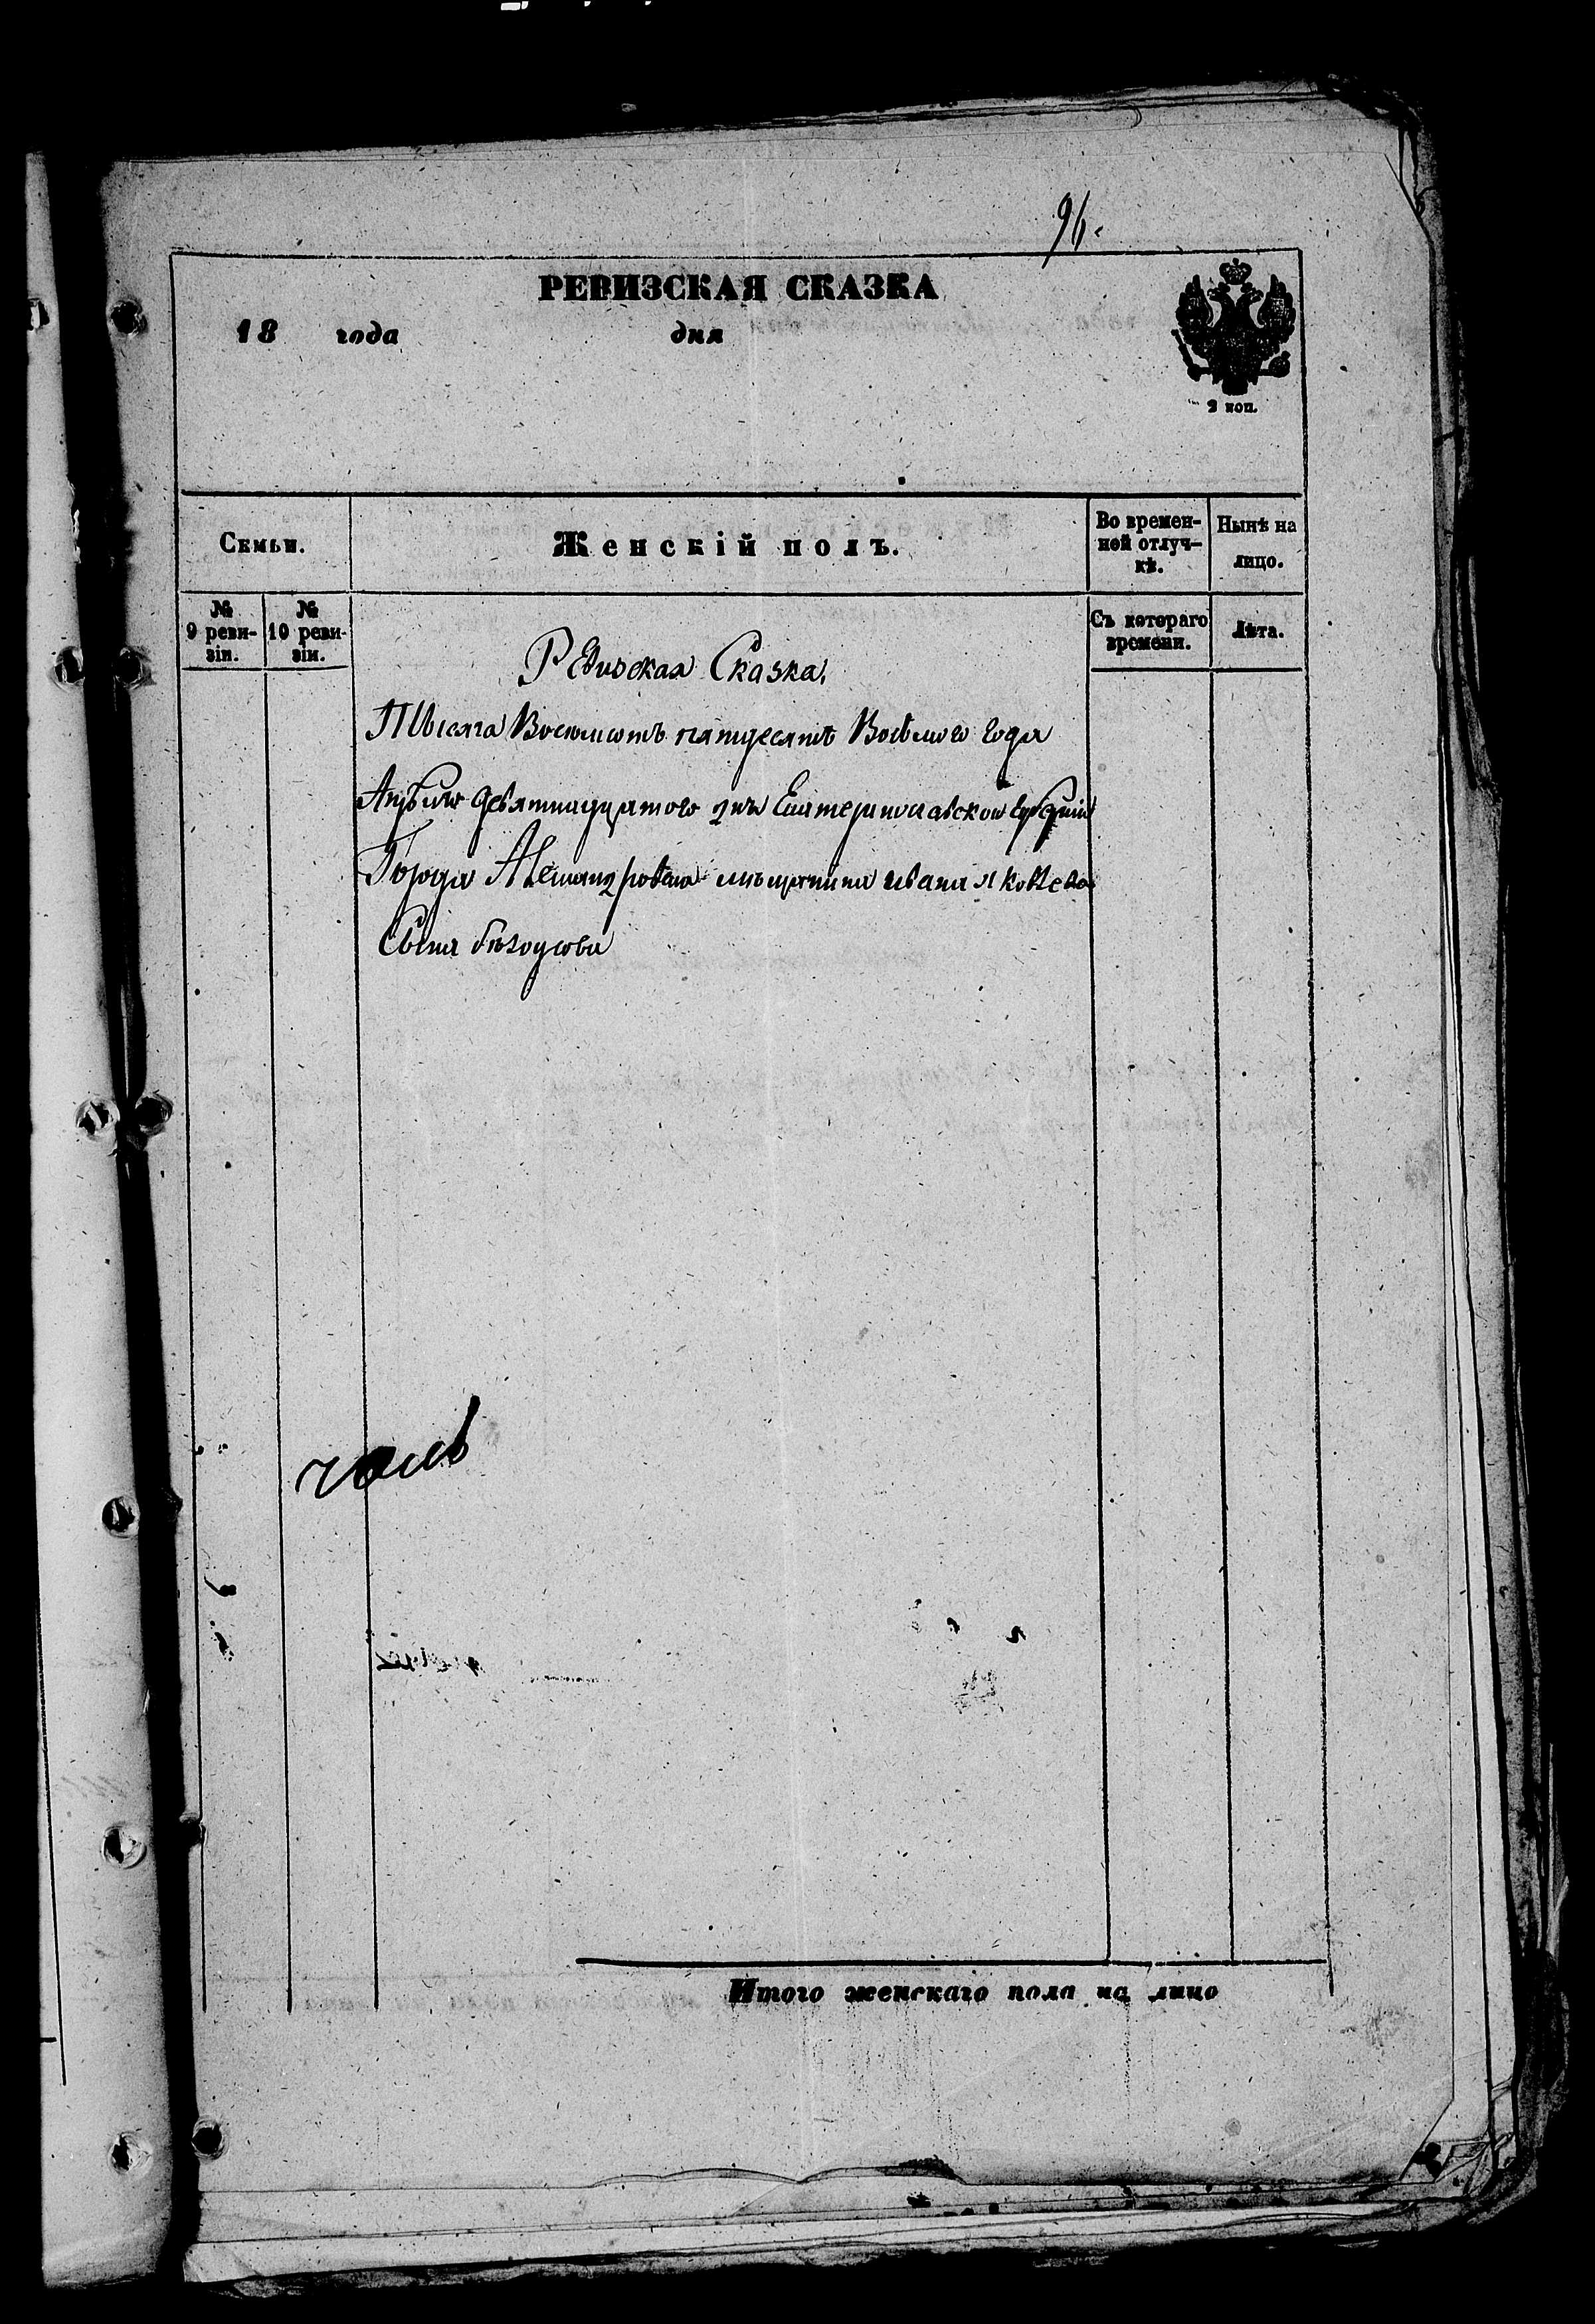 96.
РЕВИЗСКАЯ СКАЗКА
18 года дня
2 коп.
Семьи.
Женскій полъ.
Во времен-
ной отлуч-
кѣ.
Нынѣ на
лицо.
№
9 реви-
зіи.
№
10 реви-
зіи.
Съ котораго
времени.
Лѣта.
Ревизская Сказка,
Тысяча Восемьсотъ пятдесятъ Восьмого года
Апреля девятнадцатого дня Екатеринославской губерніи
Города Александровска мещанина ивана яковлева
Сына
Итого женскаго пола на лицо